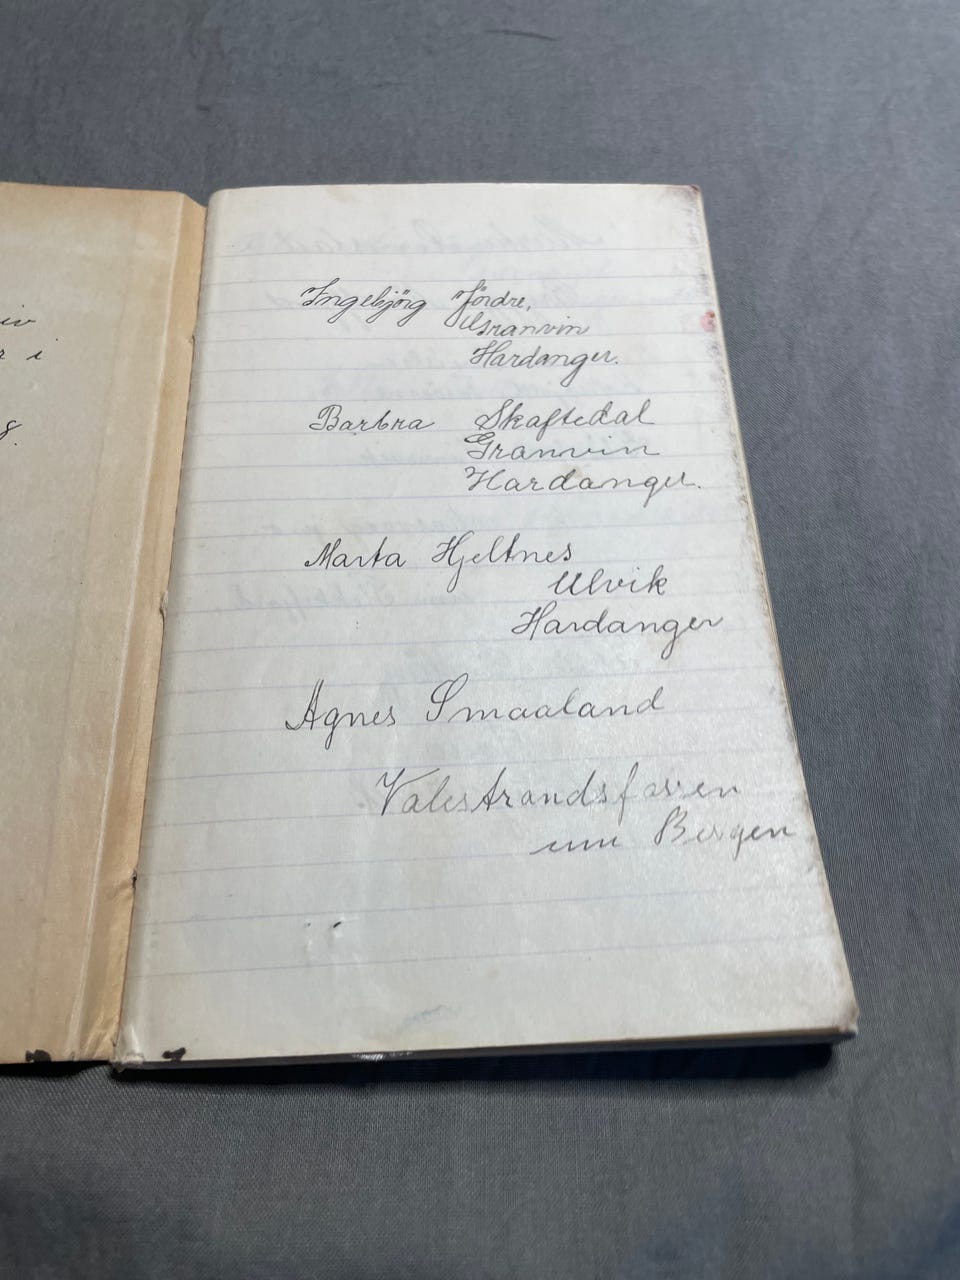 Ingebjörg Jördre,
Granvin
Hardanger.
Barbra Skaftedal
Granvin
Hardanger.
Marta Hjeltnes
Ulvik
Hardanger
Agnes Smaaland
Valestrandsfossen
um Bergen